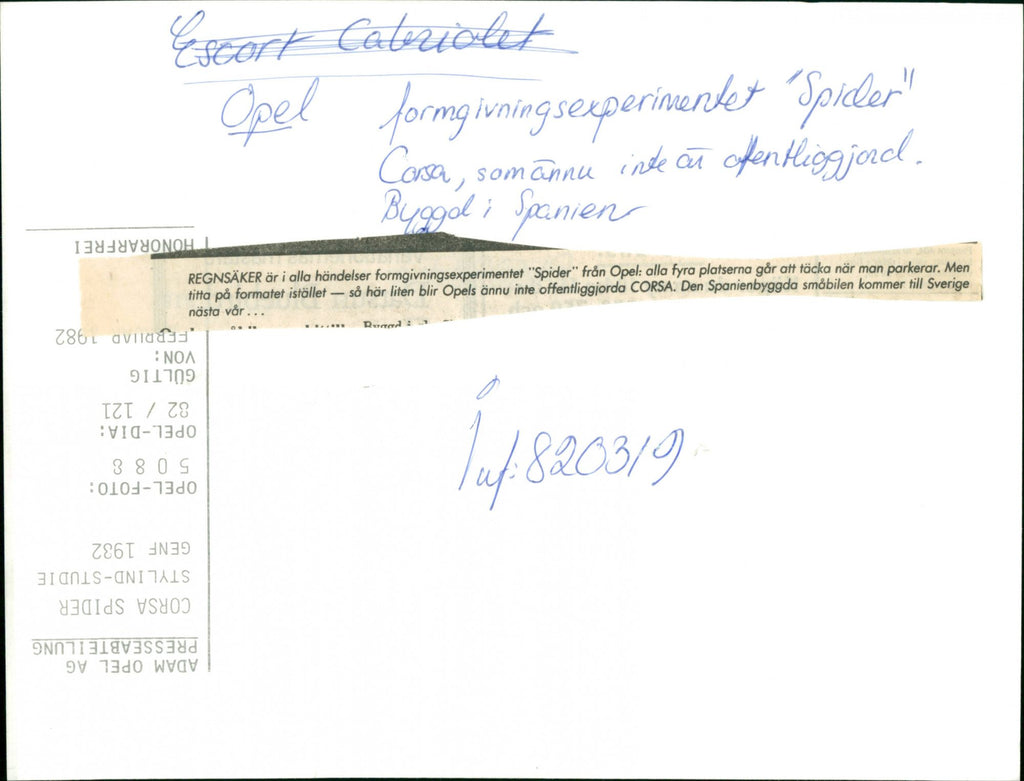 Escort Cabriolet
Opel formgivningsexperimentet "Spider"
Corsa, som ännu inte är offentliggjord.
Byggd i Spanien
REGNSÄKER är i alla händelser formgivningsexperimentet "Spider" från Opel: alla fyra platserna går att täcka när man parkerar. Men
titta på formatet istället — så här liten blir Opels ännu inte offentliggjorda CORSA. Den Spanienbyggda småbilen kommer till Sverige
nästa vår...
820319
ADAM OPEL AG
PRESSEABTEILUNG
CORSA SPIDER
STYLIND-STUDIE
GENF 1982
OPEL-FOTO:
5088
OPEL-DIA:
82 / 121
GÜLTIG
VON:
FEBRUAR 1982
HONORARFREI